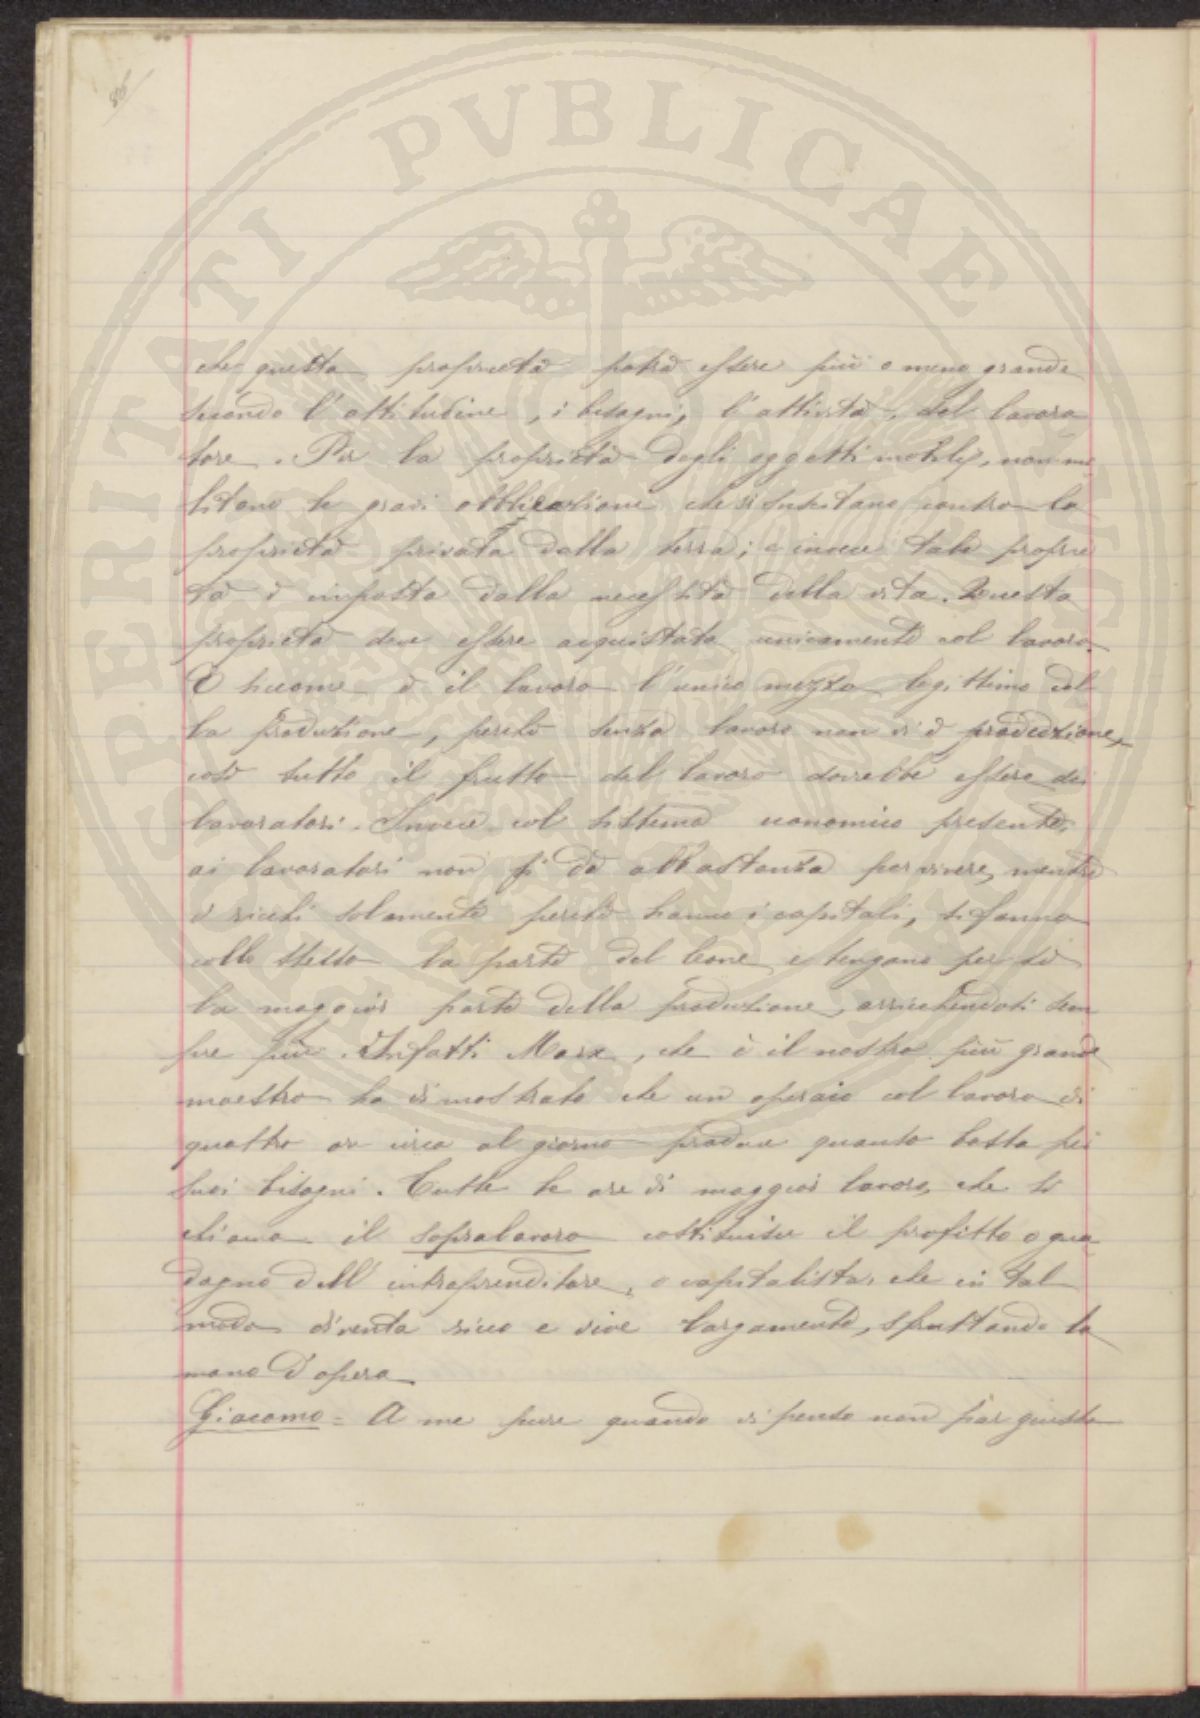 86
PROSPERITATI PVBLICAE
che questa proprietà potrà essere più o meno grande
secondo l'attitudine, i bisogni, l'attività del lavora
tore. Per la proprietà degli oggetti mobili, non mi
litano le gravi obbiezioni che si suscitano contro la
proprietà privata della terra; e invece tale proprie
tà è imposta dalla necessità della vita. Questa
proprietà deve essere acquistata unicamente col lavoro.
E siccome è il lavoro l'unico mezzo legittimo del
la produzione, perchè senza lavoro non vi è produzione,
così tutto il frutto del lavoro dovrebbe essere dei
lavoratori. Invece col sistema economico presente,
ai lavoratori non si dà abbastanza per vivere, mentre
i ricchi solamente perchè hanno i capitali, si fanno
collo stesso la parte del leone e tengono per sè
la maggior parte della produzione, arricchendosi sem
pre più. Infatti Marx, che è il nostro più grande
maestro ha dimostrato che un operaio col lavoro di
quattro ore circa al giorno produce quanto basta pei
suoi bisogni. Tutte le ore di maggior lavoro, che si
chiama il sopralavoro costituisce il profitto o gua
dagno dell'intraprenditore, o capitalista, che in tal
modo diventa ricco e vive largamente, sfruttando la
mano d'opera
Giacomo = A me pure quando ci penso non par giusto